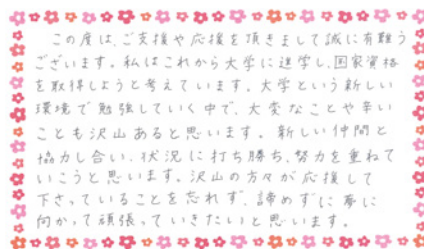 この度は、ご支援や応援を頂きまして誠に有難う
ございます。私はこれから大学に進学し、国家資格
を取得しようと考えています。大学という新しい
環境で勉強していく中で、大変なことや辛い
ことも沢山あると思います。新しい仲間と
協力し合い、状況に打ち勝ち、努力を重ねて
いこうと思います。沢山の方々が応援して
下さっていることを忘れず、諦めずに夢に
向かって頑張っていきたいと思います。